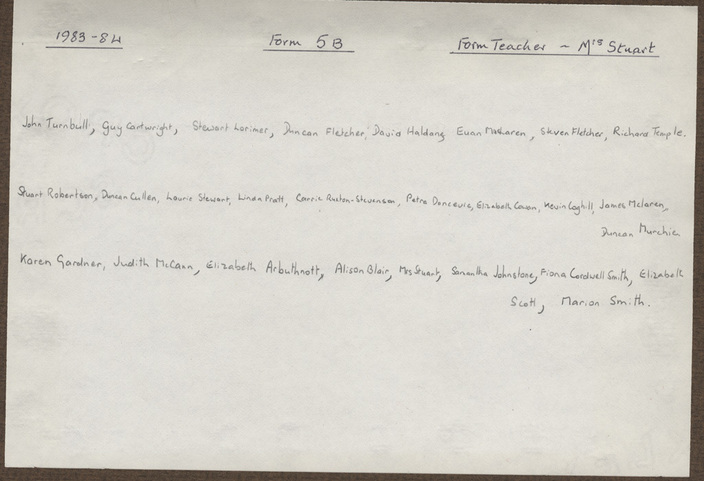 1983-84 Form 5B Form Teacher ~ Mrs Stuart
John Turnbull, Guy Cartwright, Stewart Lorimer, Duncan Fletcher, David Haldane, Euan, Steven Fletcher, Richard Temple.
Stuart Robertson, Duncan Cullen, Laurie Stewart, Linda Pratt, Carrie Ruxton-Stevenson, Petra, Elizabeth Cowan, Kevin Coghill, James McLaren,
Duncan Murchie
Karen Gardner, Judith McCann, Elizabeth Arbuthnott, Alison Blair, Mrs Stuart, Samantha Johnstone, Fiona Cardwell Smith, Elizabeth
Scott, Marion Smith.